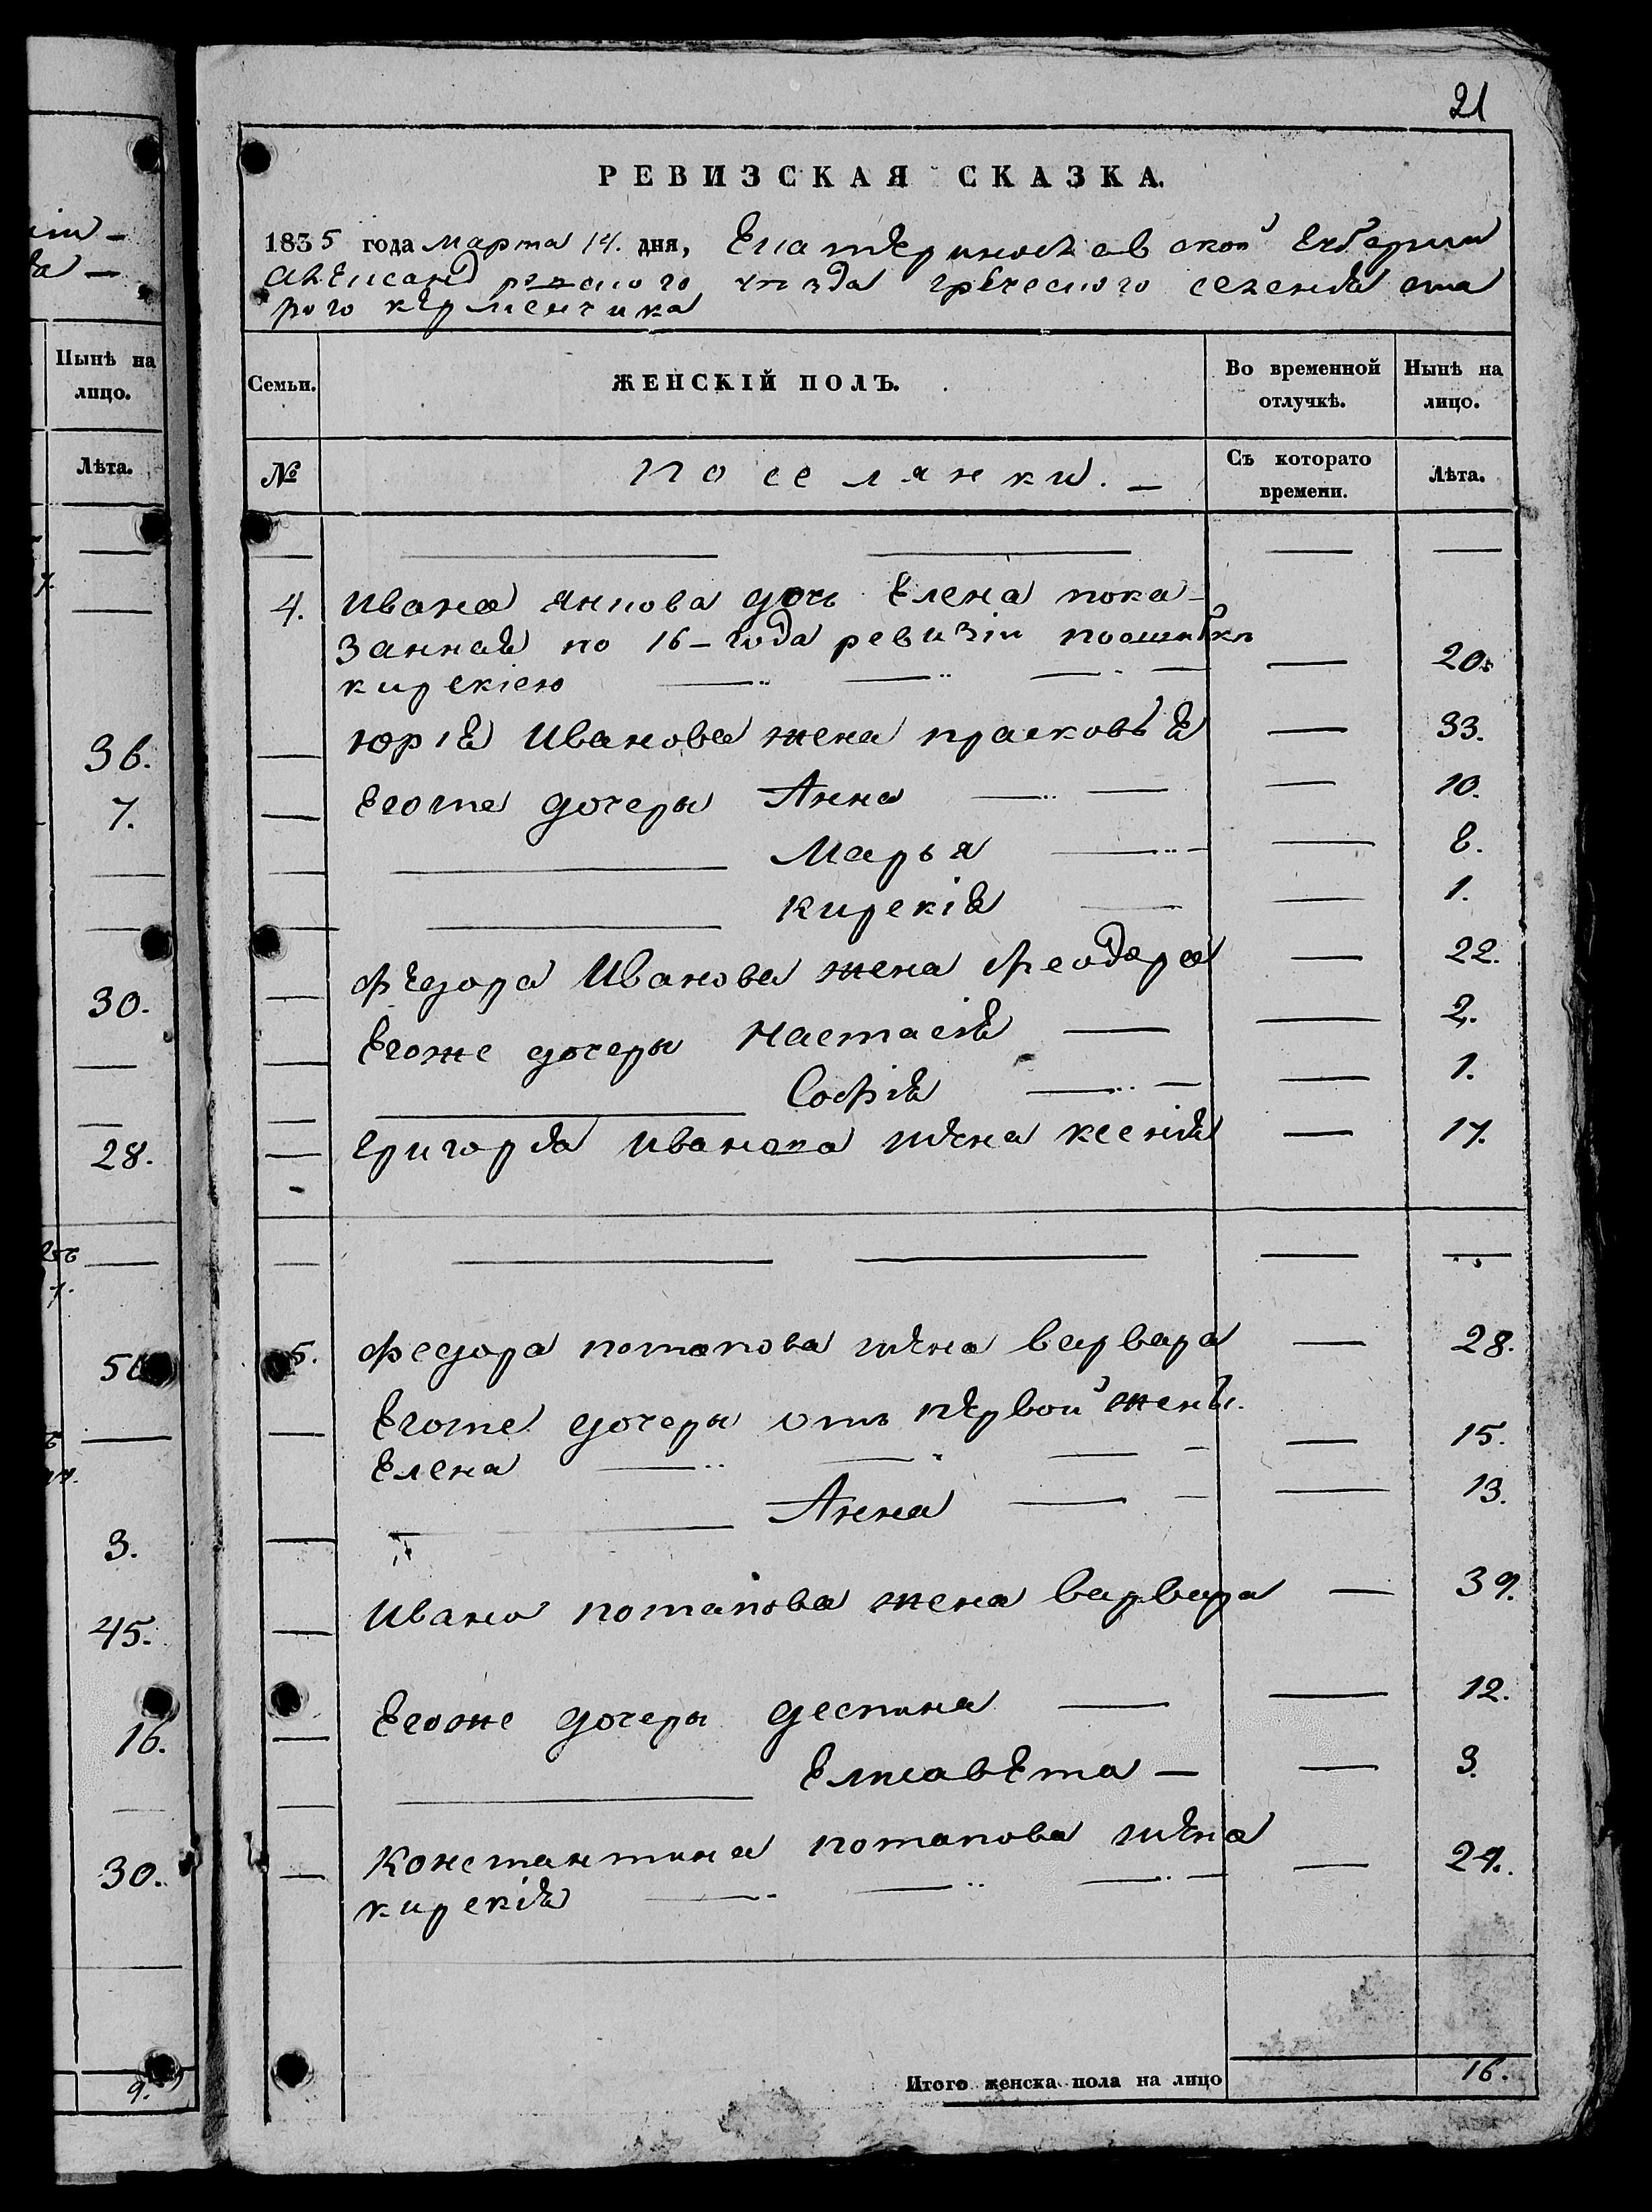 21
РЕВИЗСКАЯ СКАЗКА.
1835 года марта 14. дня, Екатеринославской Губернии
Александровского уезда греческого селения ста
рого керменчика
Семьи.
ЖЕНСКІЙ ПОЛЪ.
Во временной отлучкѣ.
Нынѣ на лицо.
№
поселянки. —
Съ которато времени.
Лѣта.
4. Ивана Янпова дочь Елена пока-
занная по 16-года ревизіи поошибки
кирекіею — 20.
юрія Иванова жена прасковья — 33.
Егоже дочери Анна — 10.
Марья — 8.
Кирекія — 1.
Федора Иванова жена Феодора — 22.
Егоже дочери Настасія — 2.
Софія — 1.
Григорія Иванова жена ксенія — 17.
5. Федора потапова жена варвара — 28.
Егоже дочери отъ первой жены.
Елена — 15.
Анна — 13.
Ивана потапова жена варвара — 39.
Егоже дочери деспина — 12.
Елисавета — 3.
Константина потапова жена
кирекія — 24.
Итого женска пола на лицо 16.
Нынѣ на лицо.
Лѣта.
36.
7.
30.
28.
3.
45.
16.
30.
9.